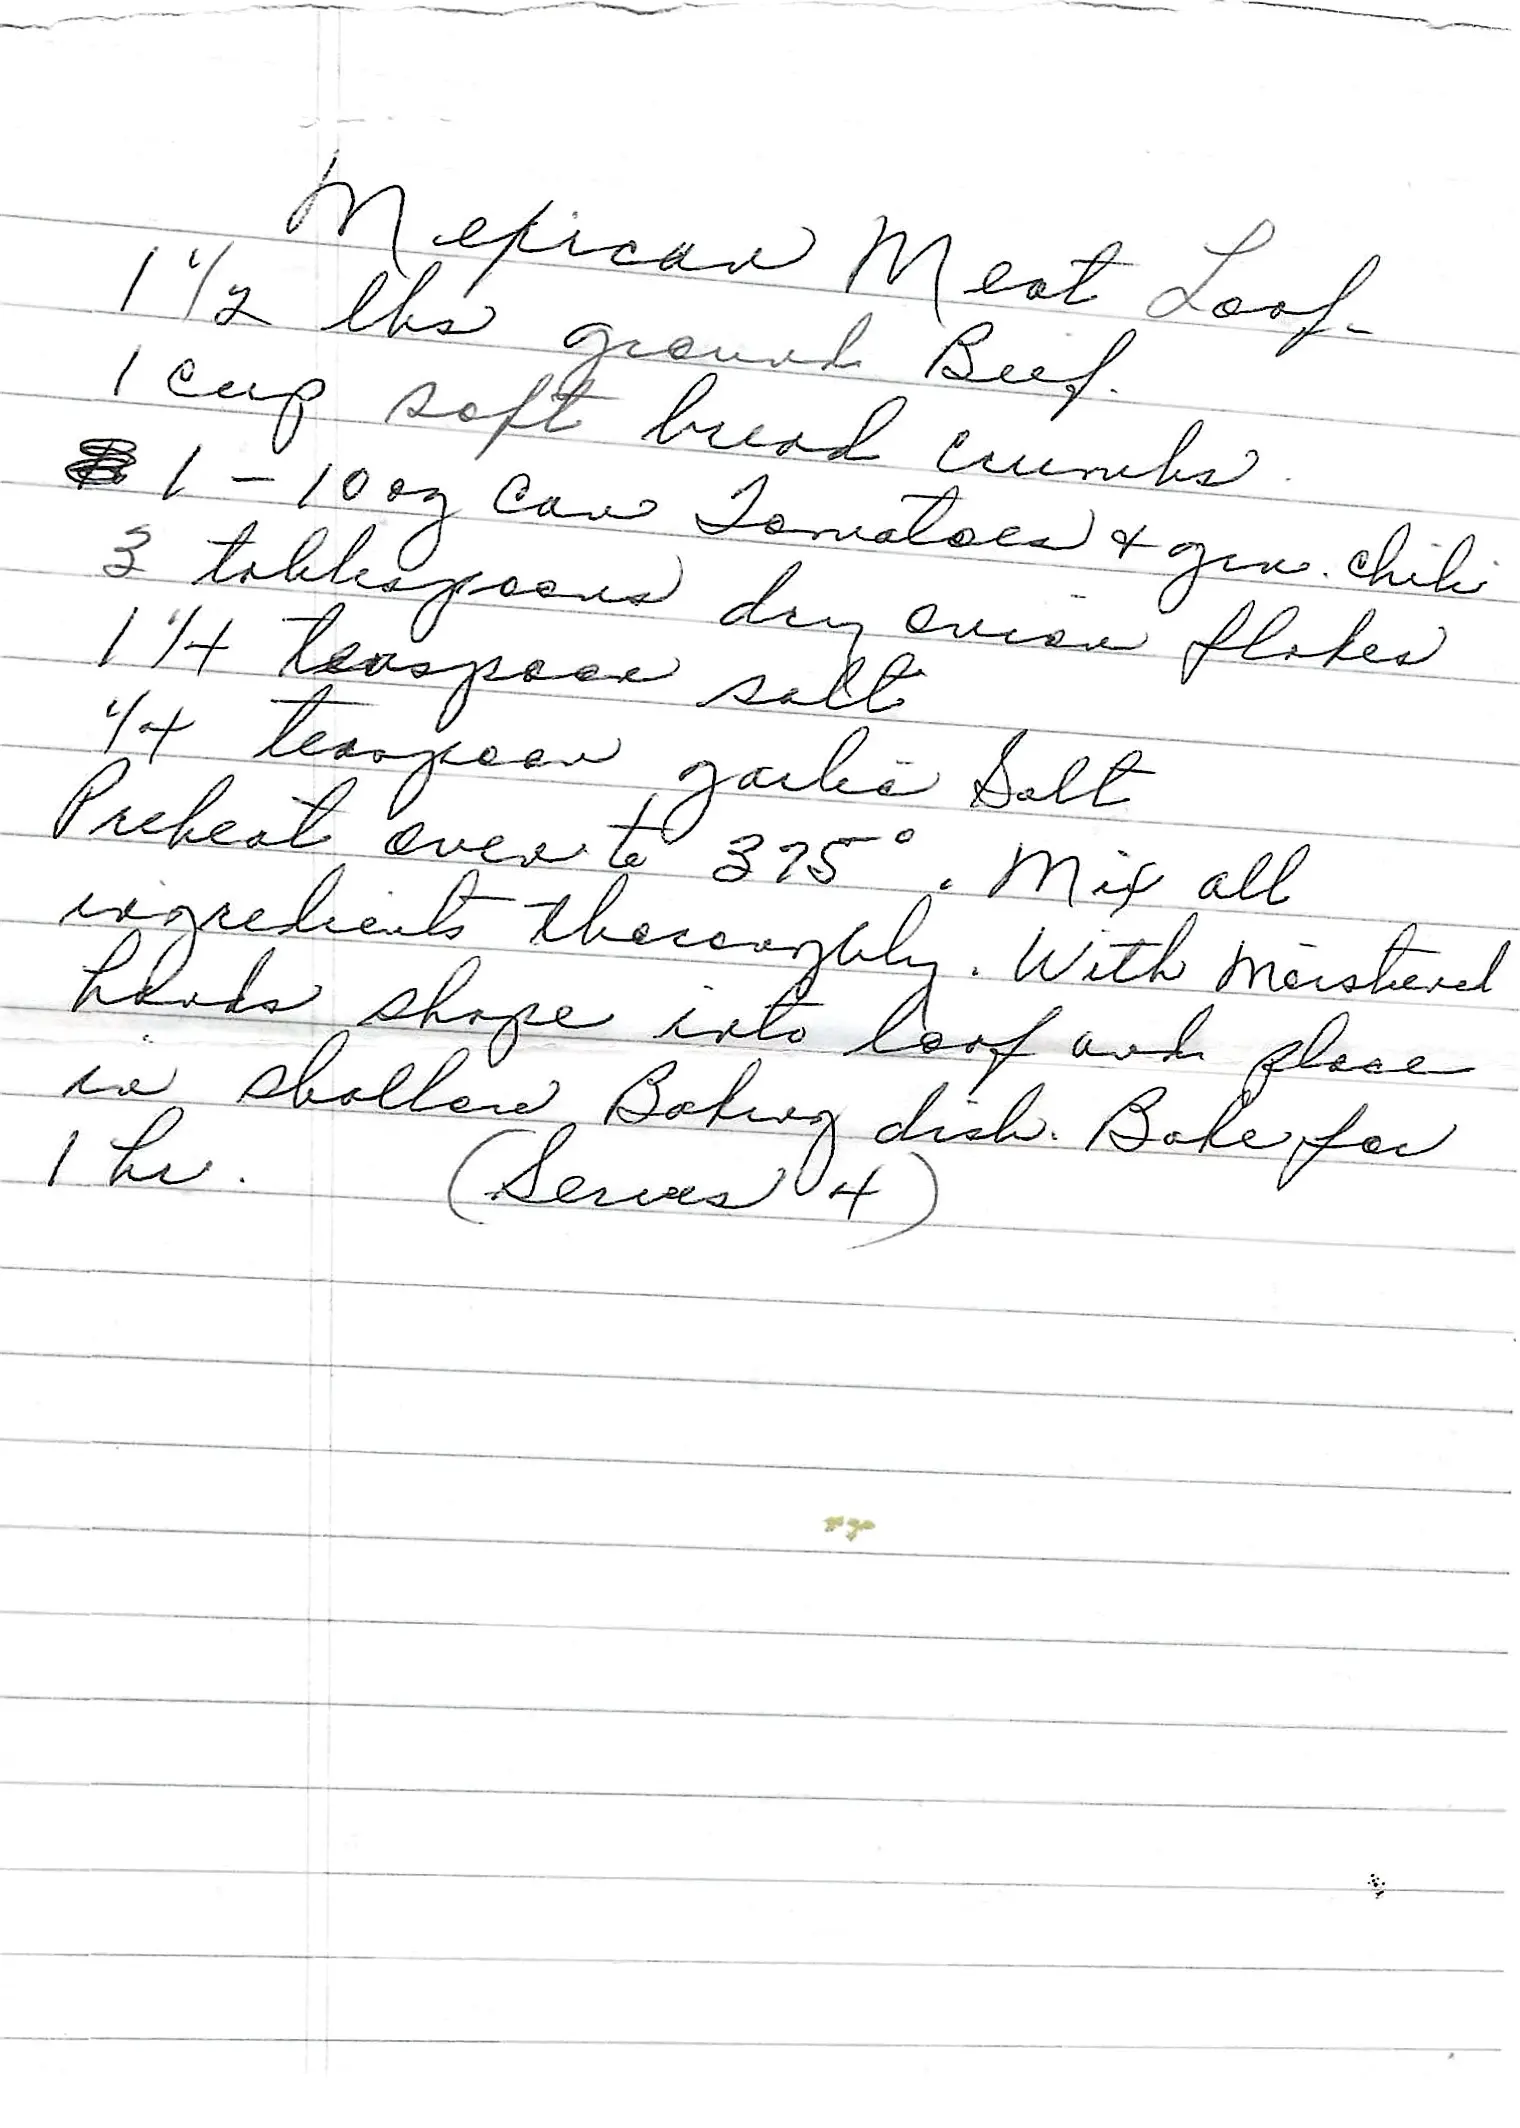 Mexican Meat Loaf.
1 1/2 lbs ground Beef.
1 cup soft bread crumbs.
1 - 10 oz can Tomatoes + grn. chili
3 tablespoons dry onion flakes
1 1/4 teaspoon salt
1/4 teaspoon garlic Salt
Preheat oven to 375°. Mix all
ingredients thoroughly. With Moistened
hands shape into loaf and place
in shallow Baking dish. Bake for
1 hr. (Serves 4)